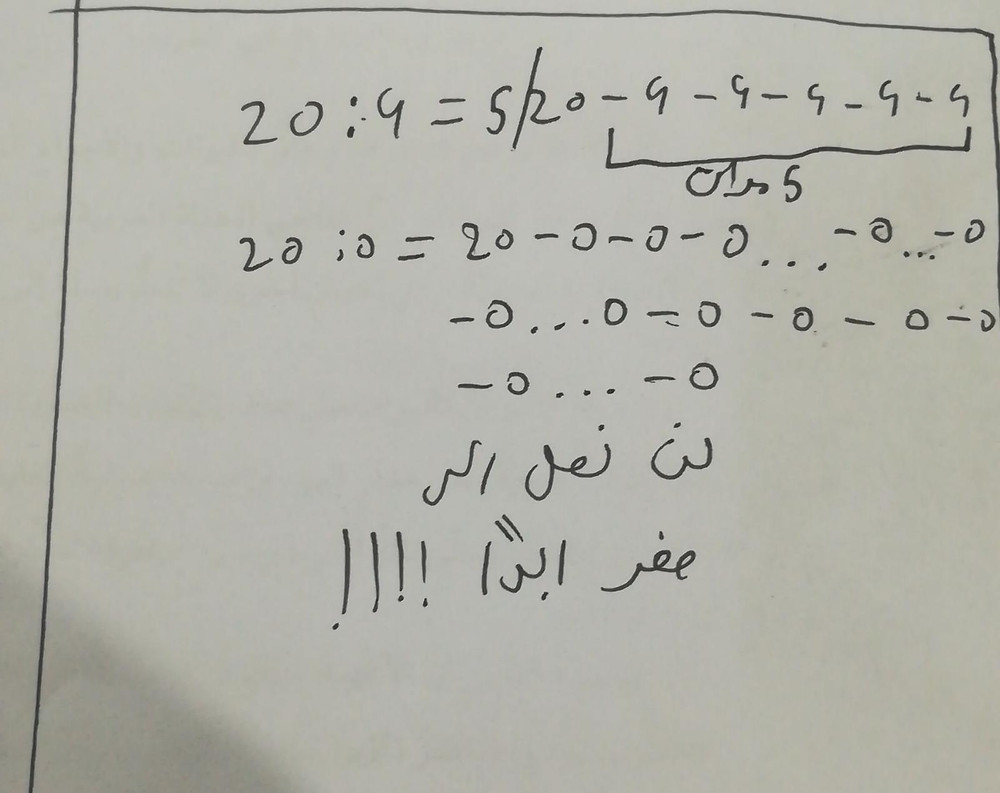 20 : 4 = 5/20 - 4 - 4 - 4 - 4 - 4
5 مرات
20 : 0 = 20 - 0 - 0 - 0 ... - 0 ... - 0
- 0 ... 0 - 0 - 0 - 0 - 0
- 0 ... - 0
لن نصل الى
صفر ابدًا !!!!!